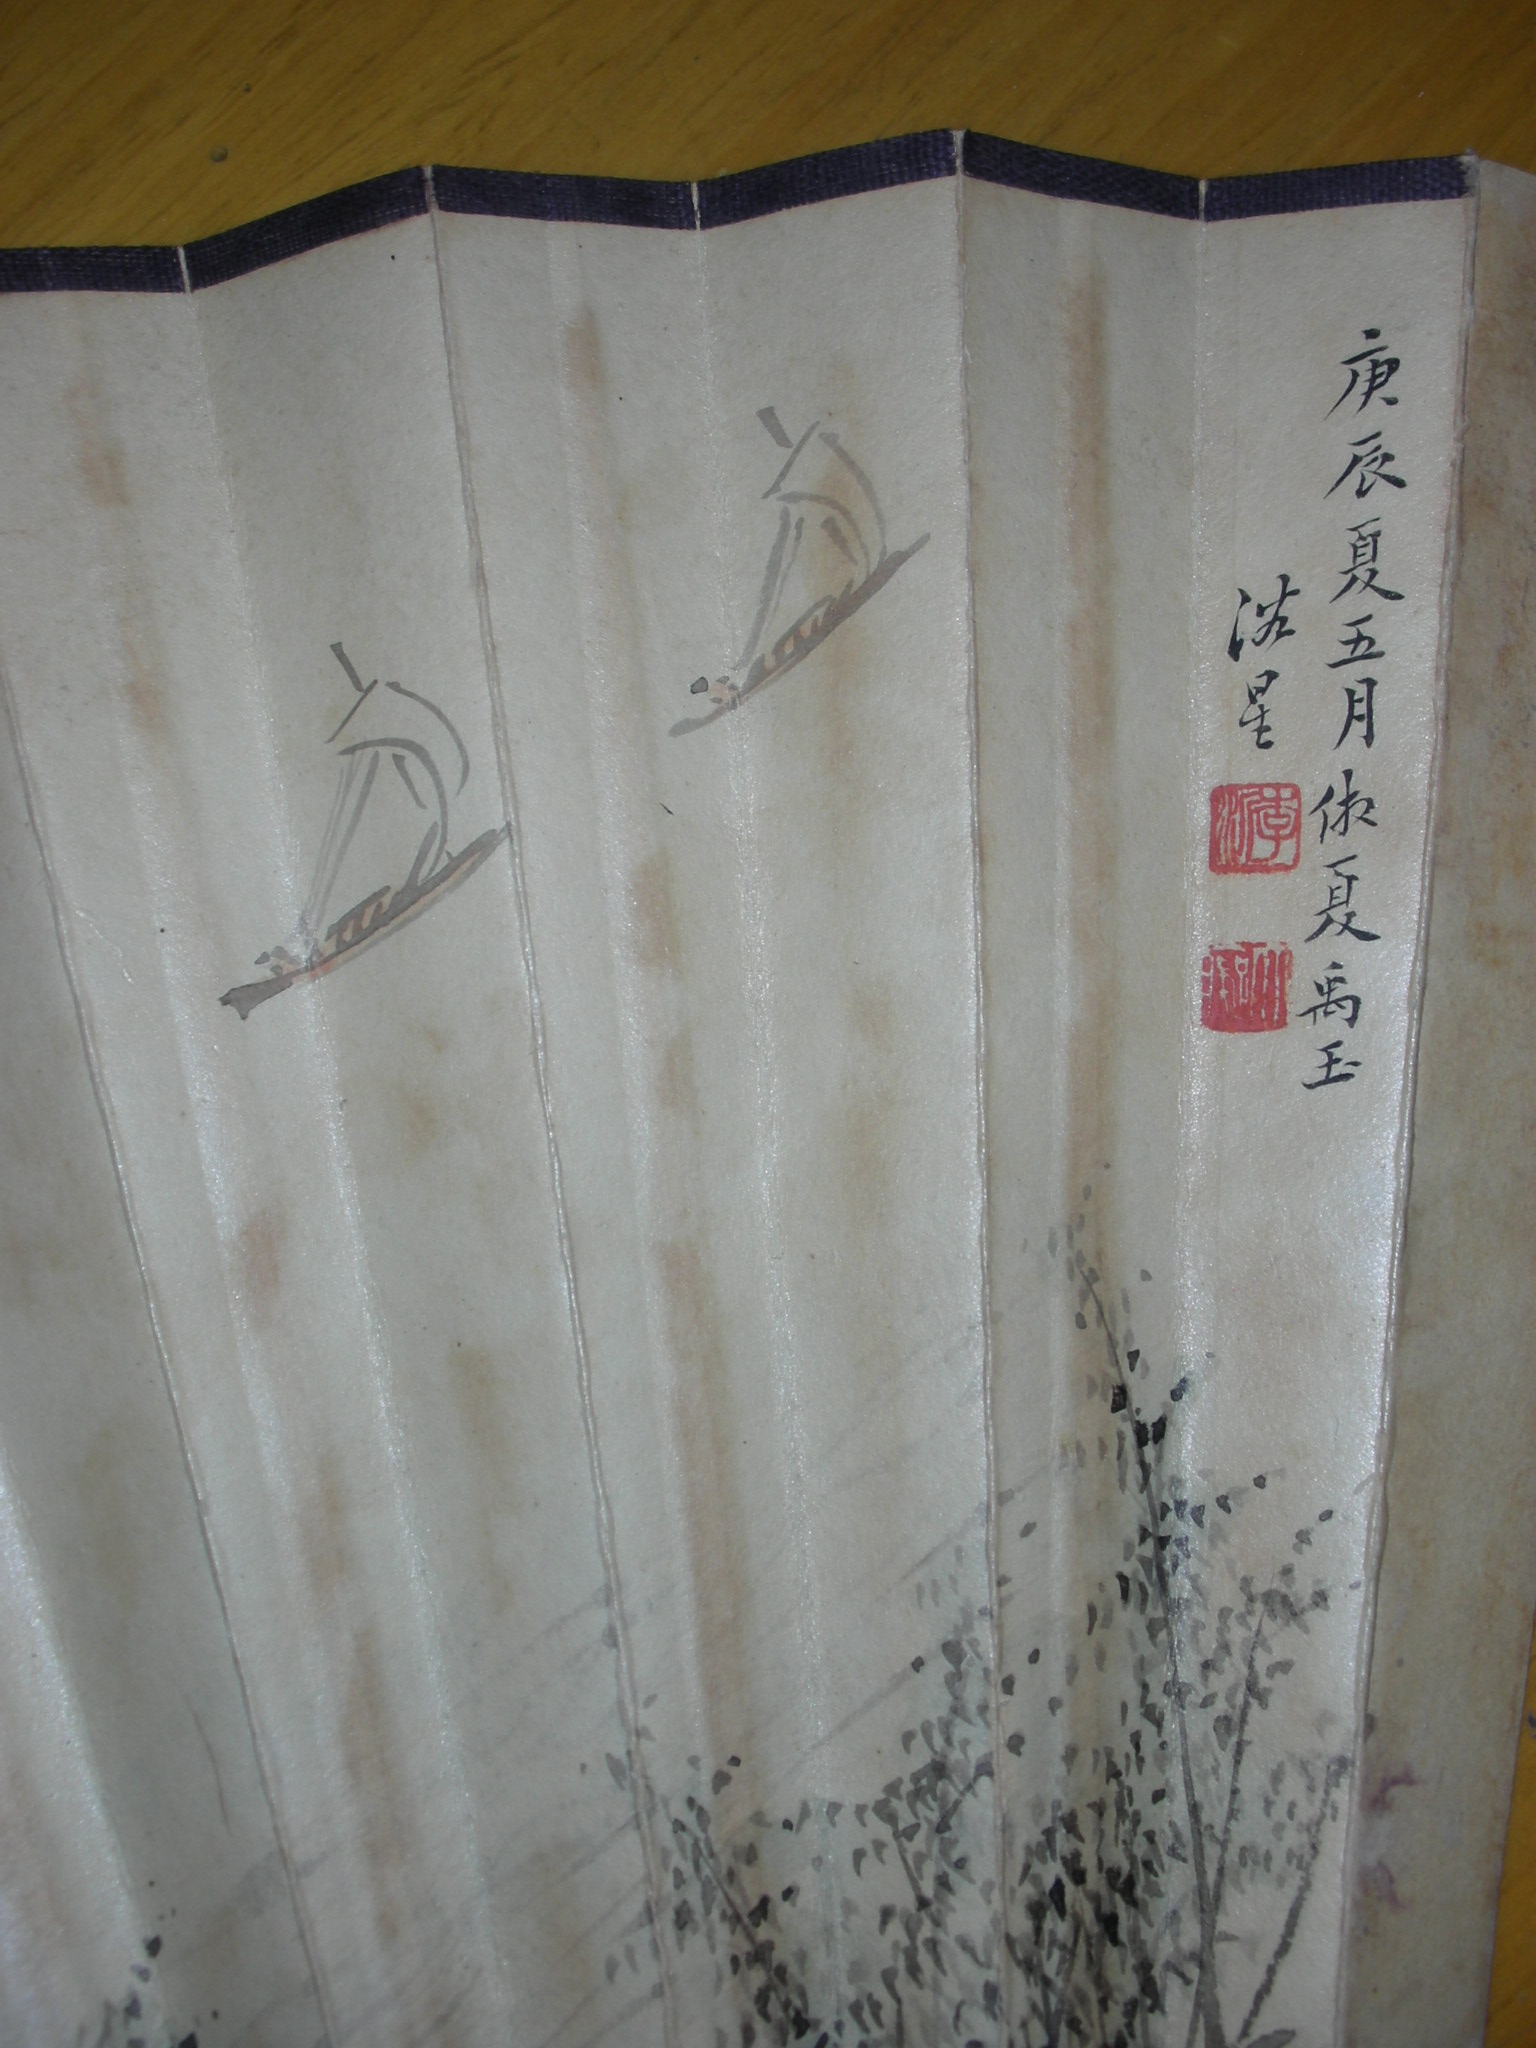 庚辰夏五月俶夏禹玉
浛星